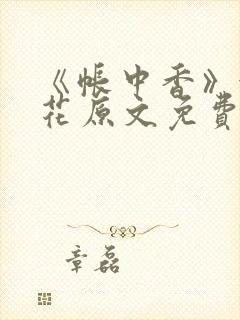 《帐中香》
花原文免费
章磊